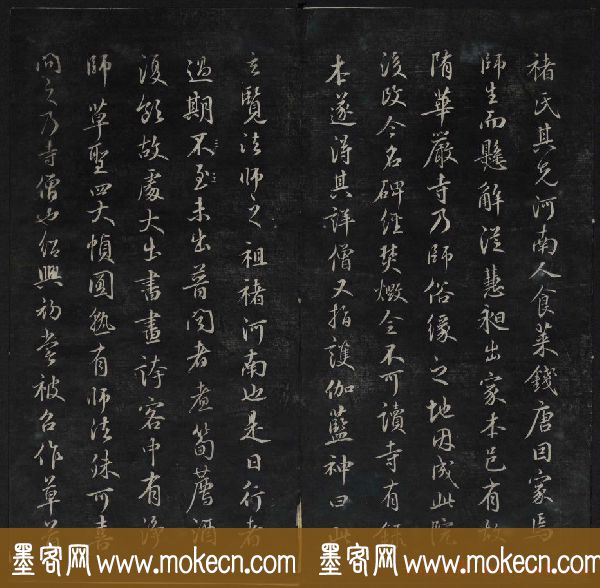 褚氏其先河南人食菜錢唐因家焉
師生而懸解從慧昶出家本邑有故
隋華嚴寺乃師俗緣之地因成此院
後改今名碑經焚燬今不可讀寺有錄
本遂得其詳僧又指護伽藍神曰此
玄覽法師之祖褚河南也是日行者
過期不至未出暮閱者煮筍薦酒
復飲故處大出書畫誇客中有淨
師草聖四大幀圓熟有師法殊可喜
問之乃寺僧也紹興初嘗被召作草
墨客网www.mokecn.com 墨客网www.mokecn.com